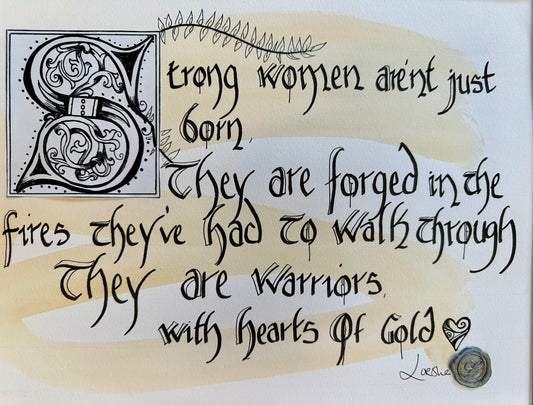 Strong women aren't just
born.
They are forged in the
fires they've had to walk through
They are warriors,
with hearts of Gold